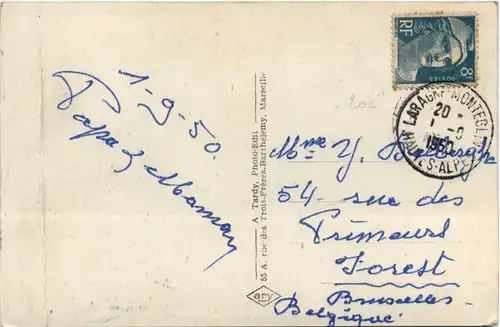 1-9-50.
Papa & Maman
A Tardy, Photo-Edit
55 A. rue des Trois-Frères-Barthélemy, Marseille
ary
RF
POSTES
8F
LARAGNE-MONTEGLIN
20
1 - 9
1950
HTES-ALPES
Mme Y.
54 rue des
Primeurs
Forest
Bruxelles-
Belgique.